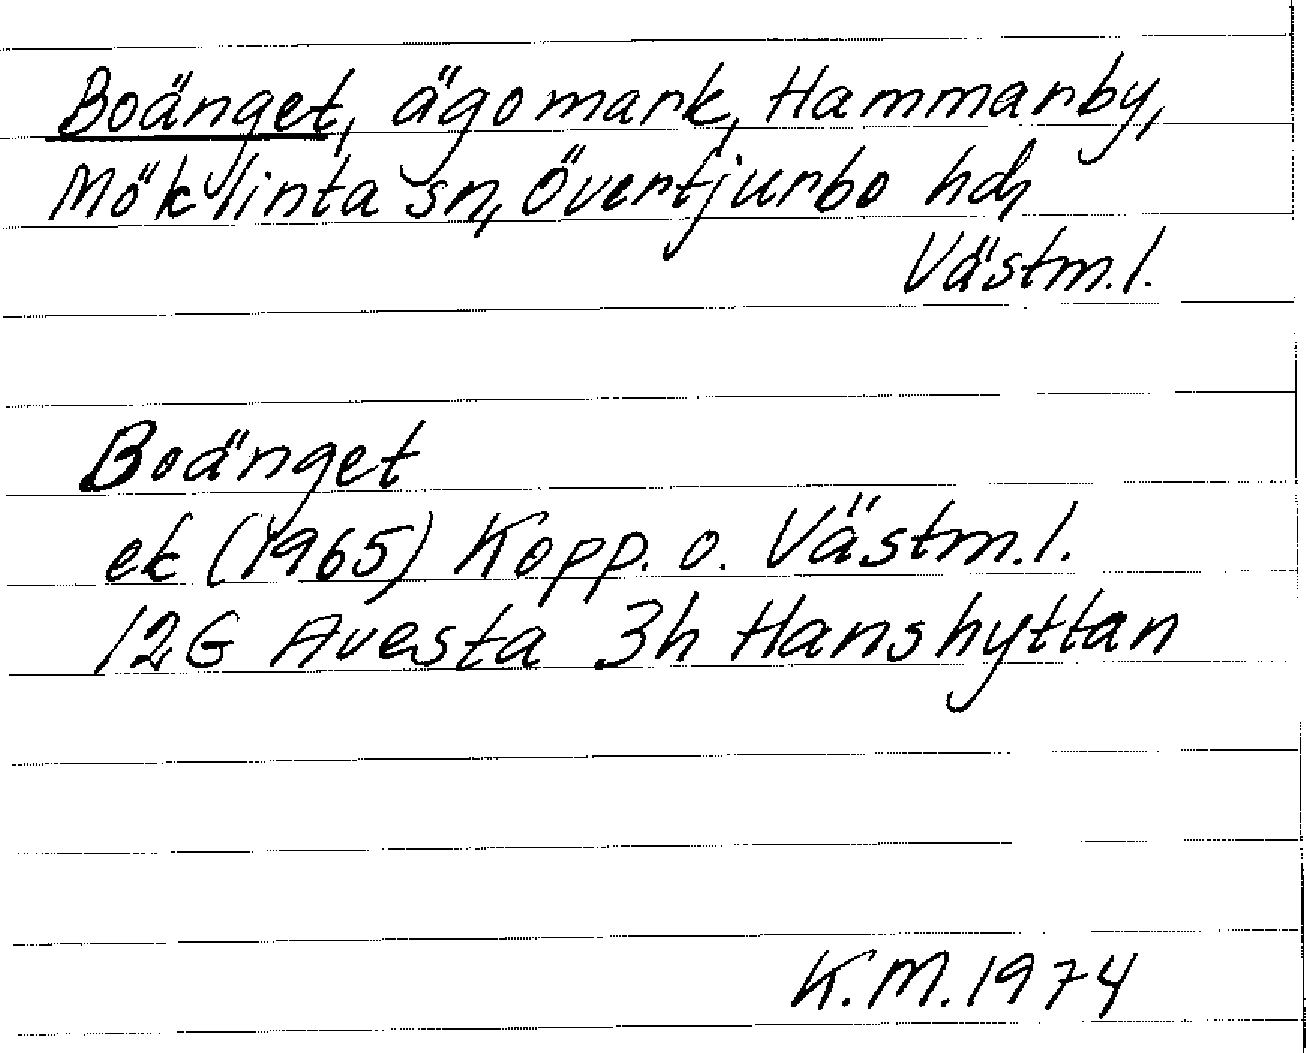 Boänget, ägomark, Hammarby,
Möklinta sn, Övertjurbo hd,
Västm.l.
Boänget
ek (1965) Kopp. o. Västm.l.
12G Avesta 3h Hanshyttan
K.M. 1974